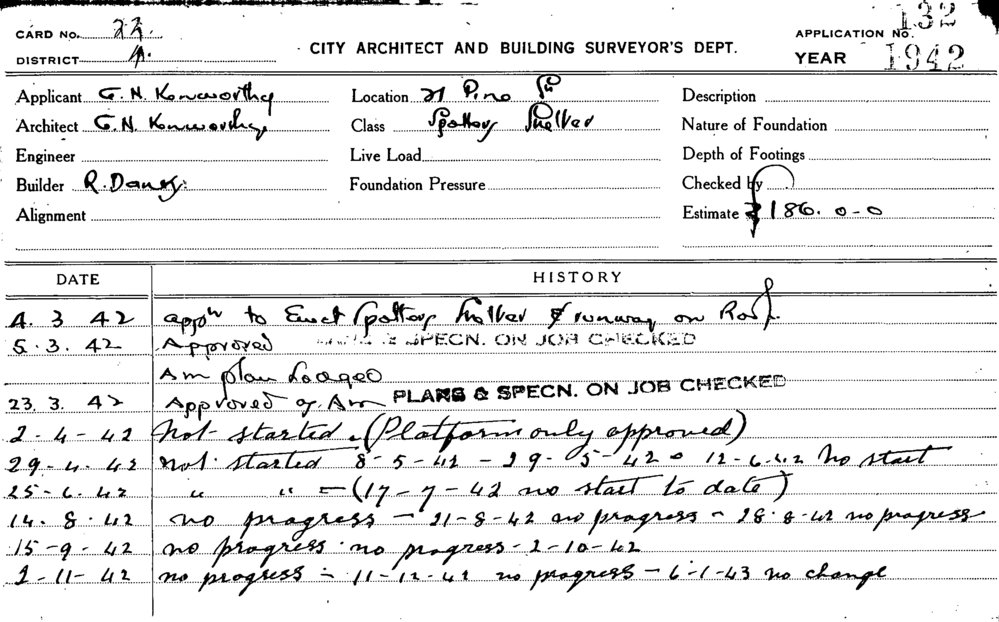 CARD No. 22.
APPLICATION No. 132
DISTRICT A.
CITY ARCHITECT AND BUILDING SURVEYOR'S DEPT.
YEAR 1942
Applicant G. N. Kenworthy Location 21 Description
Architect G. N. Kenworthy Class Spotters Shelter Nature of Foundation
Engineer Live Load Depth of Footings
Builder R. Foundation Pressure Checked by
Alignment Estimate £186. 0-0
DATE HISTORY
4. 3 42 appn to Erect Spotters Shelter & runway on Roof.
5. 3. 42 Approved & SPECN. ON JOB CHECKED
Am plan Lodged
23. 3. 42 Approved Am PLANS & SPECN. ON JOB CHECKED
2-4-42 Not started. (Platform only approved)
29-4. 42 not started 8-5-42 - 29-5-42 - 12-6-42 No start
25-6. 42 " " - (17-7-42 no start to date)
14. 8. 42 no progress - 21-8-42 no progress - 28-8-42 no progress
15-9-42 no progress. no progress - 2-10-42
2-11-42 no progress - 11-12-42 no progress - 6-1-43 no change